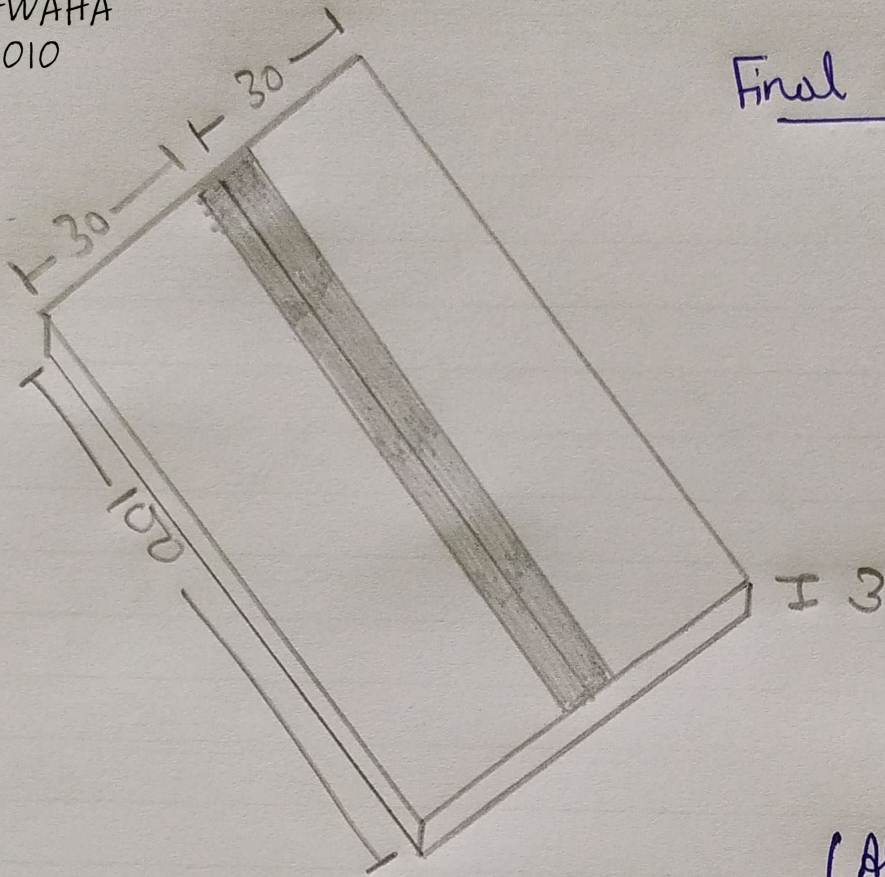 WAHA
010
Final
30
30
100
3
(A